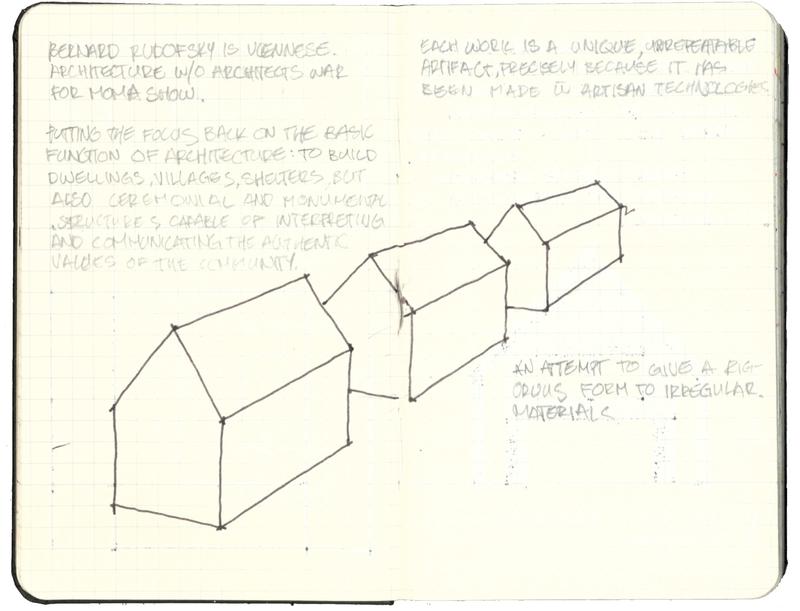 BERNARD RUDOFSKY IS VIENNESE.
ARCHITECTURE W/O ARCHITECTS WAR
FOR MOMA SHOW.
PUTTING THE FOCUS BACK ON THE BASIC
FUNCTION OF ARCHITECTURE: TO BUILD
DWELLINGS, VILLAGES, SHELTERS, BUT
ALSO CEREMONIAL AND MONUMENTAL
STRUCTURES CAPABLE OF INTERPRETING
AND COMMUNICATING THE AUTHENTIC
VALUES OF THE COMMUNITY.
EACH WORK IS A UNIQUE, UNREPEATABLE
ARTIFACT, PRECISELY BECAUSE IT HAS
BEEN MADE W ARTISAN TECHNOLOGIES
AN ATTEMPT TO GIVE A RIG-
OROUS FORM TO IRREGULAR
MATERIALS